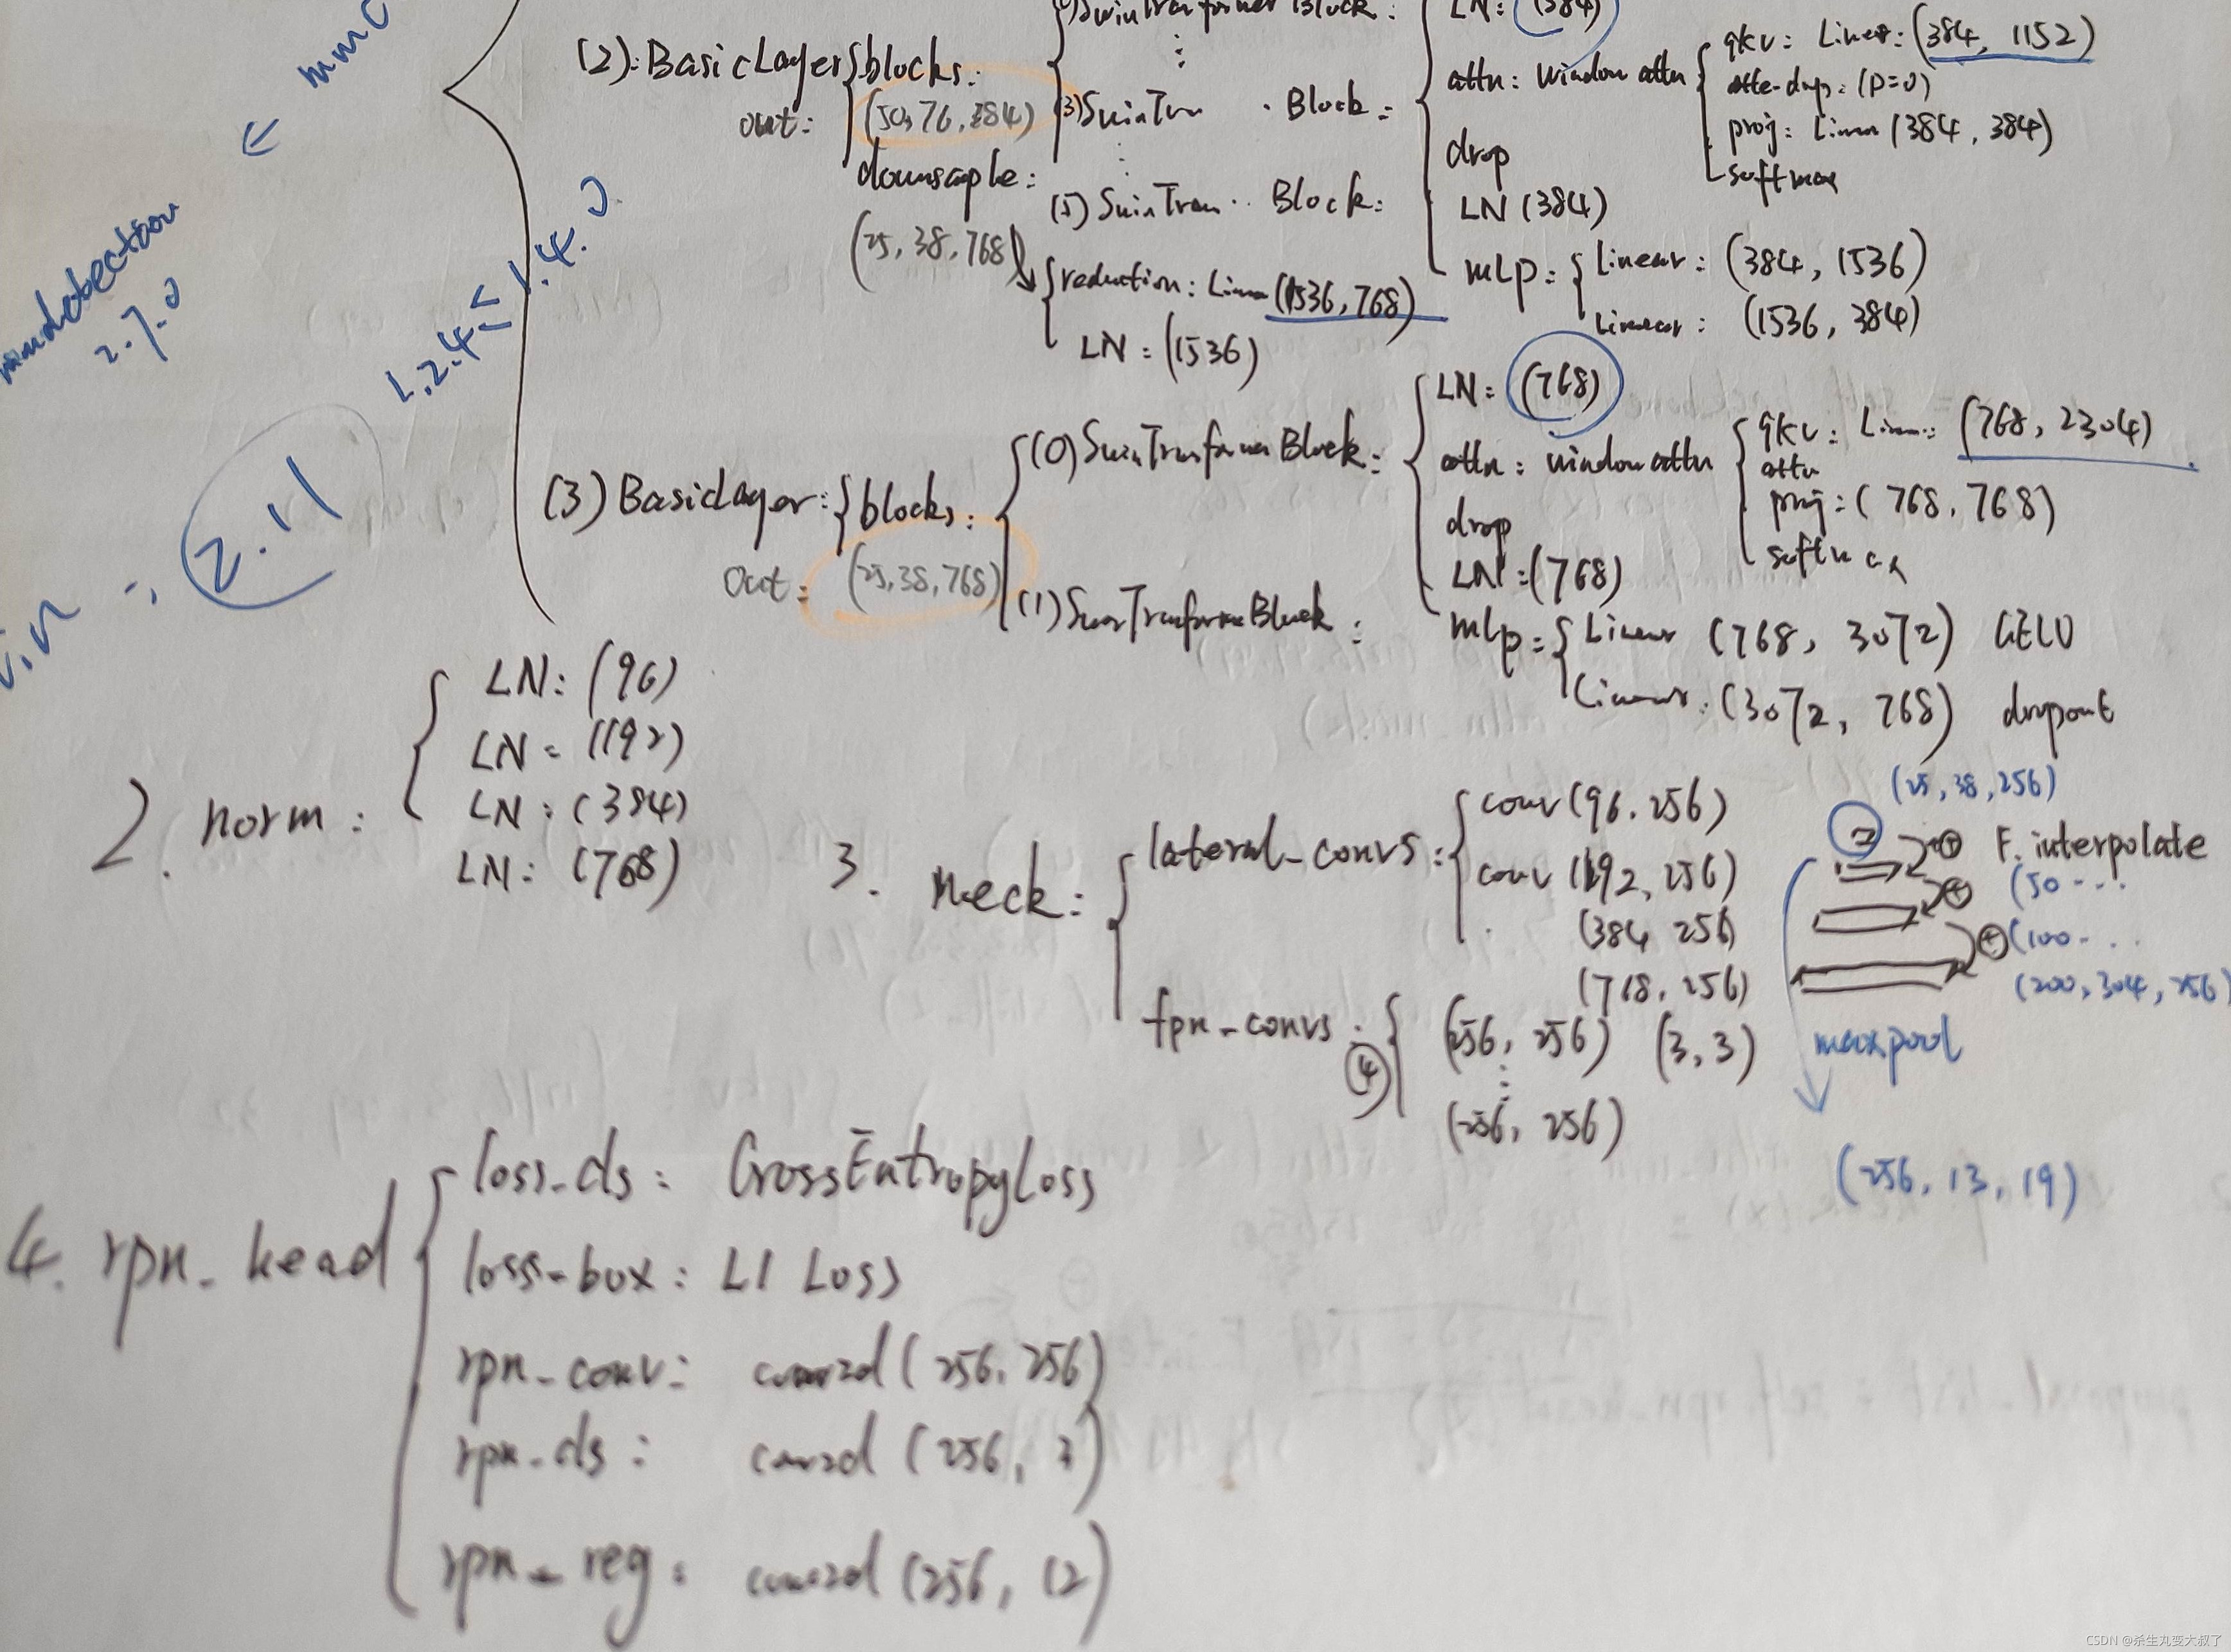 mmc
mmdetection
2.7.0
1.2.4 ≤ 1.4.0
: 2.11
(2): BasicLayer { blocks:
out: (50, 76, 384)
SwinTransformer Block:
(3) SwinTran · Block:
(5) SwinTran·· Block:
LN: (384)
attn: window attn
qkv: Linear: (384, 1152)
atte-drop: (p=0)
proj: Linear (384, 384)
softmax
drop
LN (384)
mlp: { Linear: (384, 1536)
Linear: (1536, 384)
downsaple:
(25, 38, 768)
{ reduction: Linear (1536, 768)
LN: (1536)
(3) BasicLayer: { blocks:
out: (25, 38, 768)
(0) SwinTransformer Block:
(1) SwinTransformer Block:
LN: (768)
attn: window attn
qkv: Linear: (768, 2304)
attn
proj: (768, 768)
softmax
drop
LN: (768)
mlp: { Linear (768, 3072) GELU
Linear: (3072, 768) dropout
2. norm: { LN: (96)
LN: (192)
LN: (384)
LN: (768)
3. neck: { lateral_convs: { conv (96, 256)
conv (192, 256)
(384 256)
(768, 256)
fpn_convs: { (256, 256) (3, 3)
④
⋮
(256, 256)
(25, 38, 256)
2
⊕ F.interpolate
⊕ (50 ---
⊕ (100 - ..
(200, 304, 256)
maxpool
(256, 13, 19)
4. rpn_head { loss_cls: CrossEntropyLoss
loss_box: L1 Loss
rpn_conv: conv2d (256, 256)
rpn_cls: conv2d (256, 3)
rpn_reg: conv2d (256, 12)
CSDN @杀生丸变大叔了